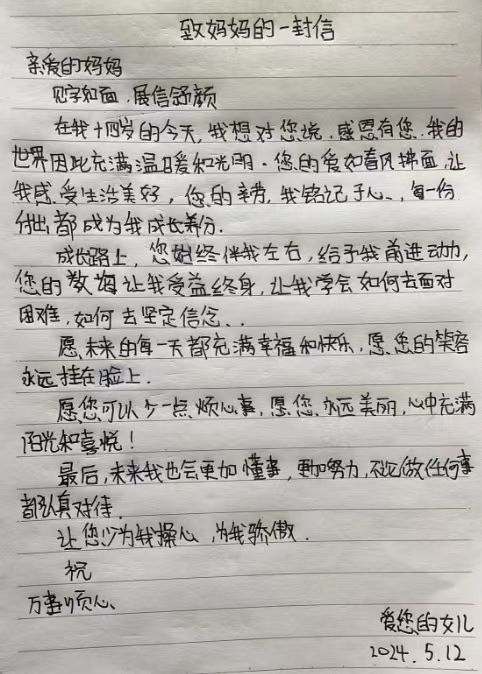 致妈妈的一封信
亲爱的妈妈
见字如面，展信舒颜
在我十四岁的今天，我想对您说，感恩有您，我的
世界因此充满温暖和光明．您的爱如春风拂面，让
我感受生活美好，您的辛劳，我铭记于心、，每一份
付出都成为我成长养分．
成长路上，您始终伴我左右，给予我前进动力，
您的教诲让我受益终身，让我学会如何去面对
困难，如何去坚定信念、．
愿未来的每一天都充满幸福和快乐，愿您的笑容
永远挂在脸上．
愿您可以少一点烦心事，愿您永远美丽，心中充满
阳光和喜悦！
最后，未来我也会更加懂事，更加努力，不论做任何事
都认真对待．
让您少为我操心，为我骄傲．
祝
万事顺心、
爱您的女儿
2024.5.12